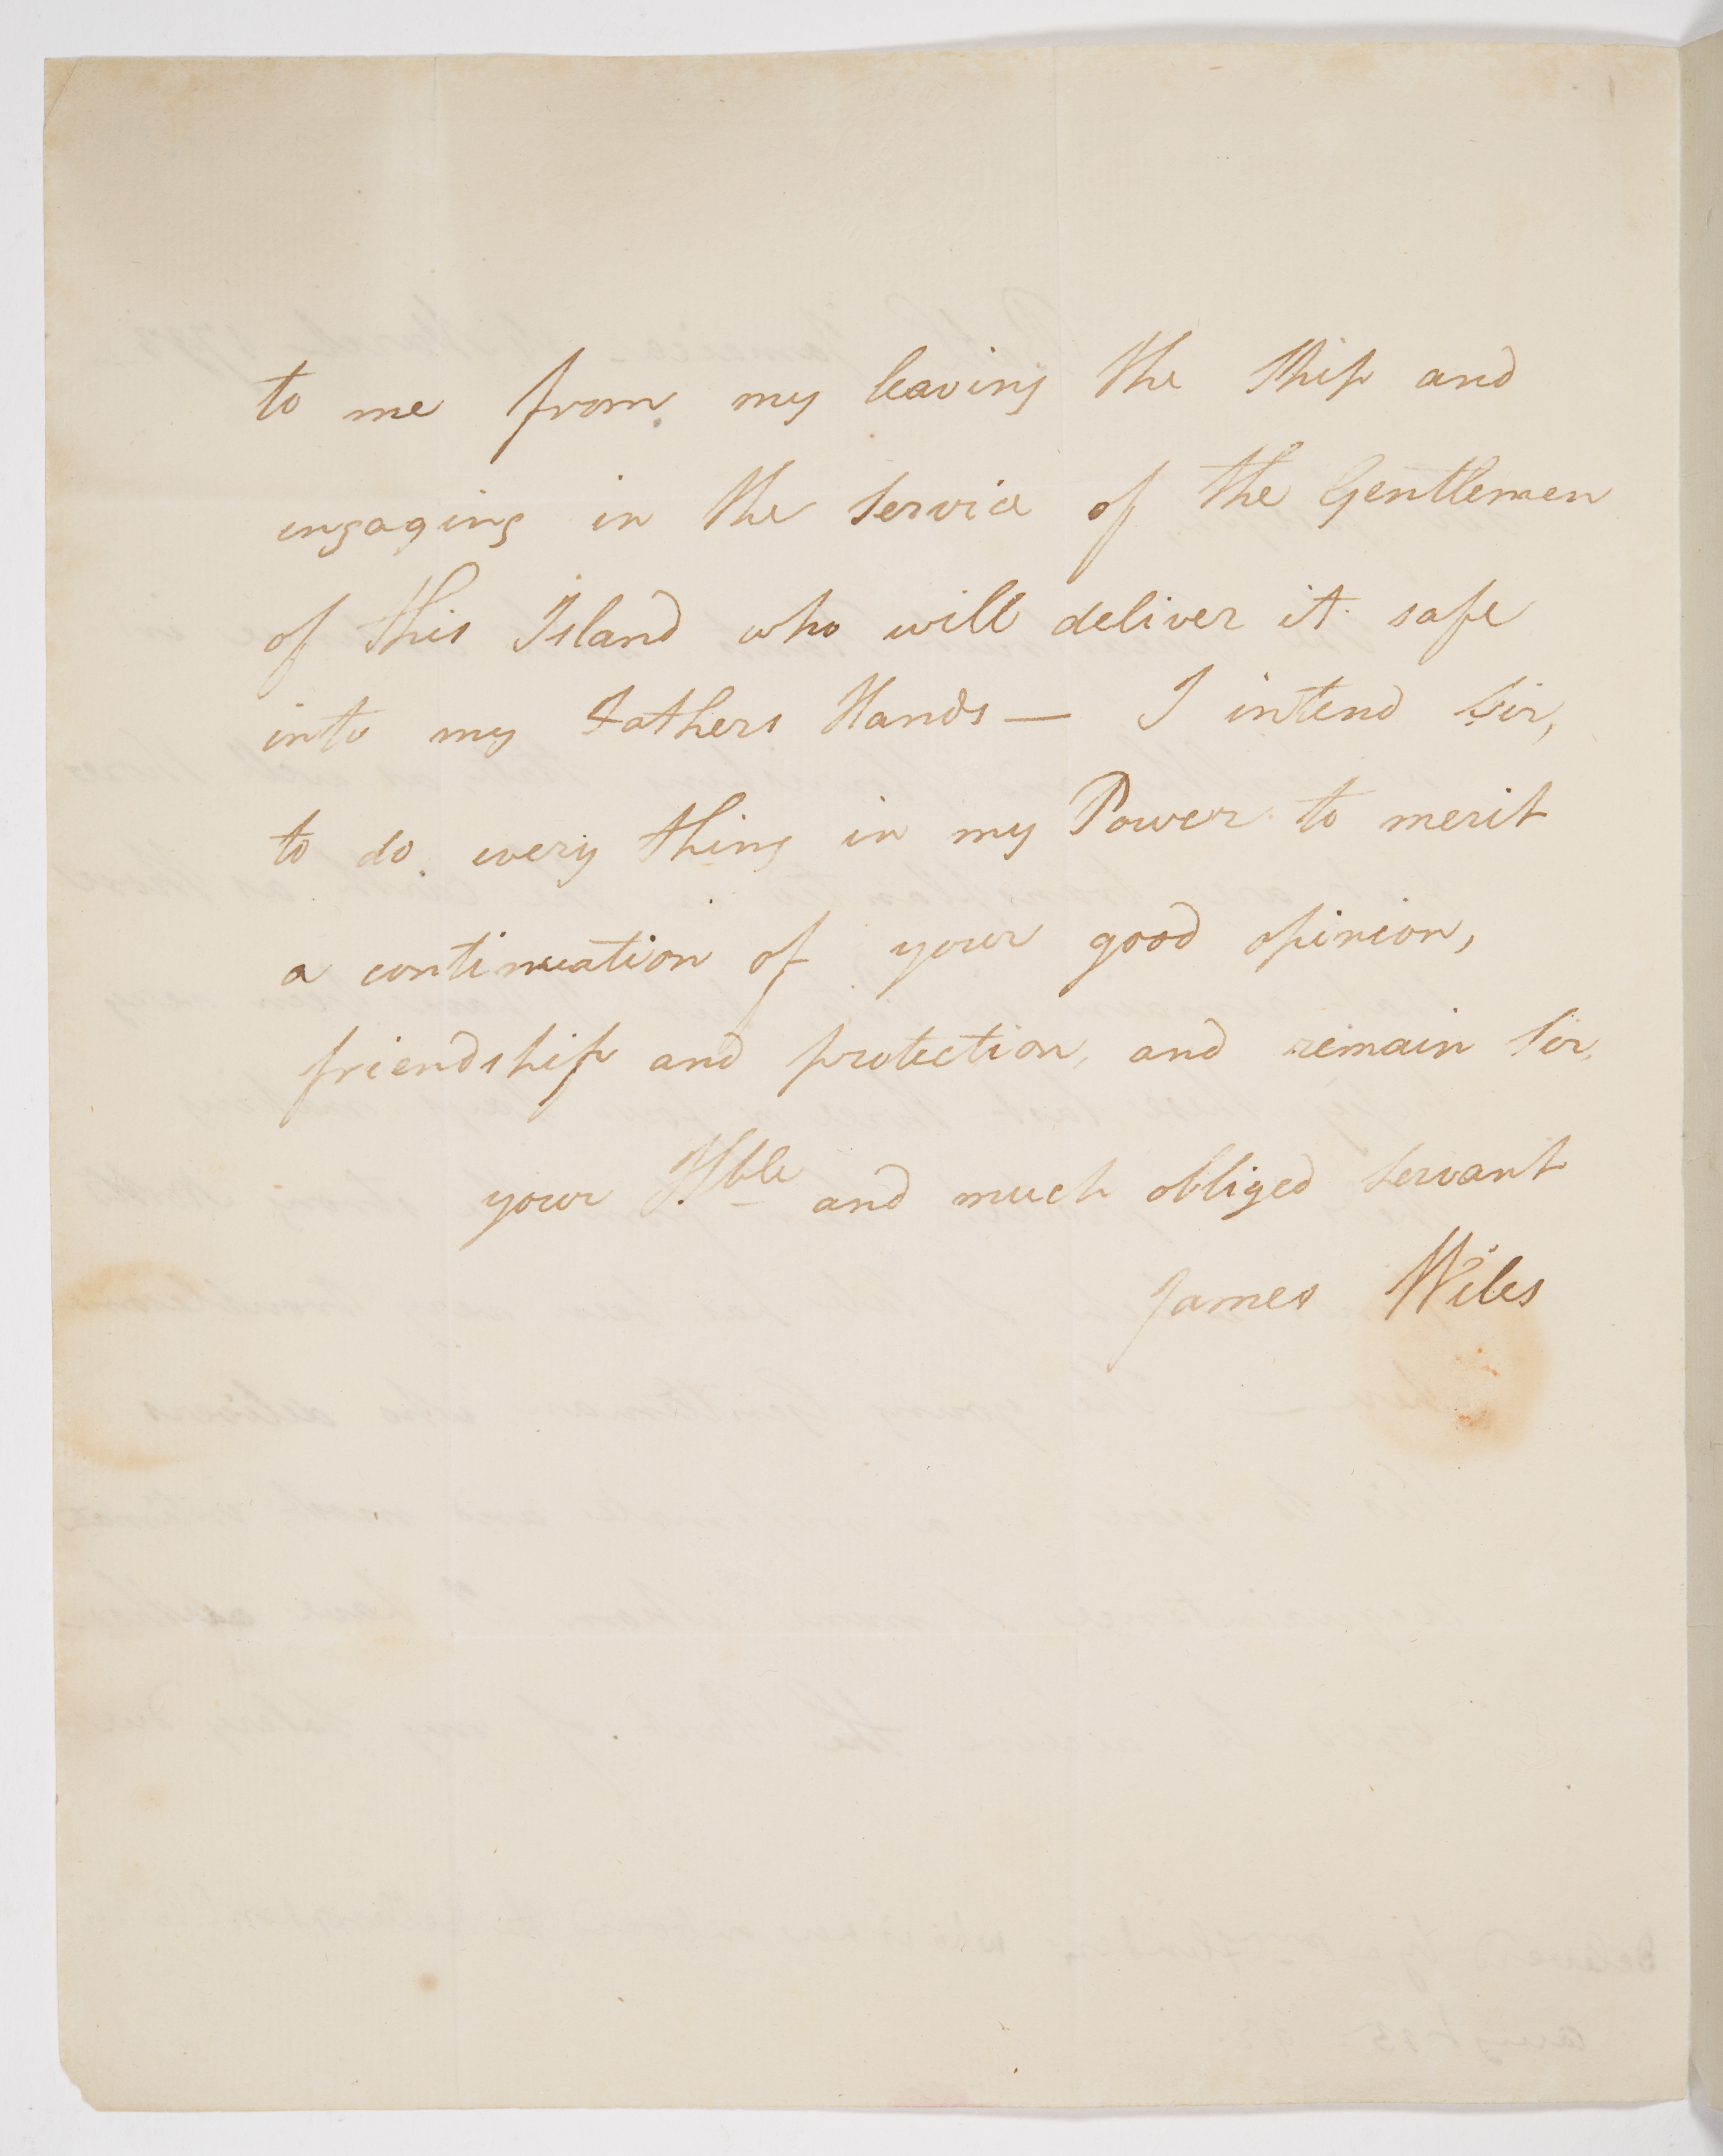 to me from my leaving the Ship and
engaging in the Service of the Gentlemen
of this Island who will deliver it safe
into my Fathers Hands — I intend Sir,
to do every thing in my Power to merit
a continuation of your good opinion,
friendship and protection, and remain Sir,
your Hble and much obliged Servant
James Wiles